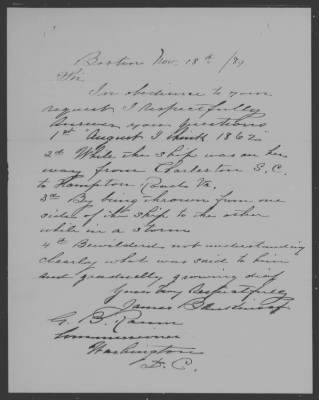 Boston Nov. 18th /89
Sir
In obedience to your
request I respectfully
answer your questions
1st August I think 1862
2d While the ship was on her
way from Charleston S. C.
to Hampton Roads Va.
3d By being thrown from one
side of the ship to the other
while in a storm
4th Bewildered not understanding
clearly what was said to him
and gradually growing deaf
Yours Very Respectfully
James
G. B. Raum
Commissioner
Washington
D. C.